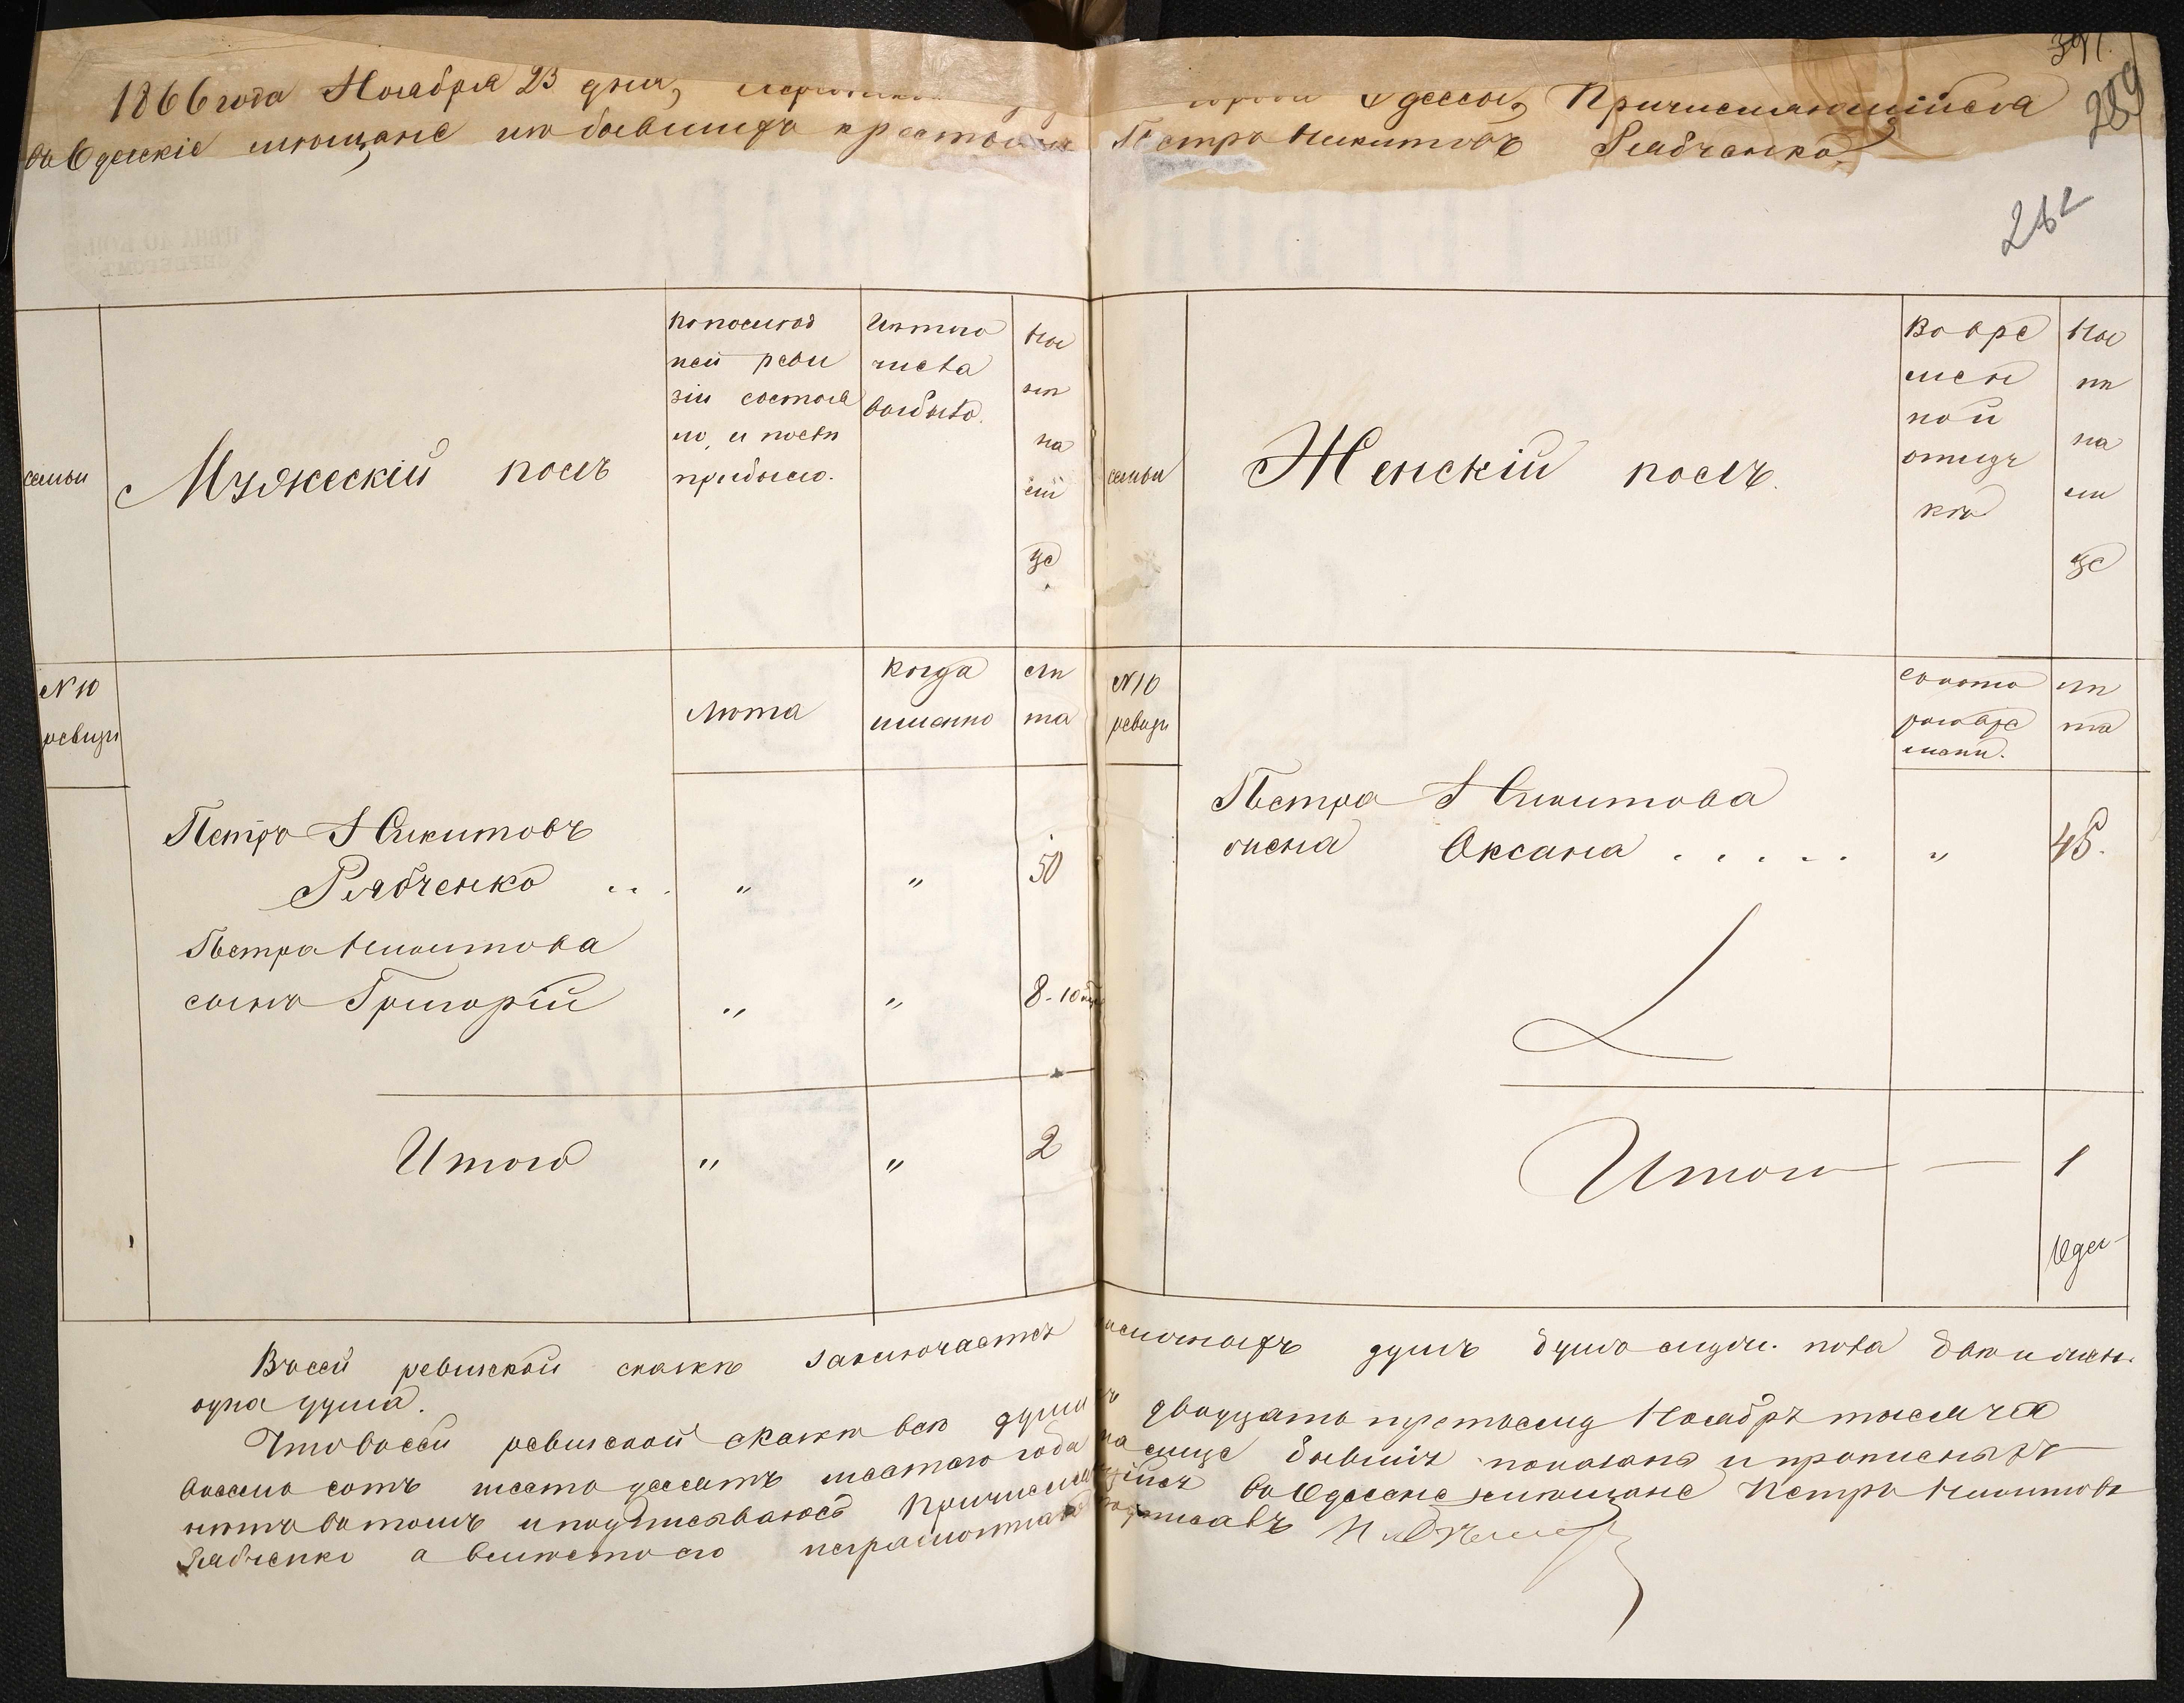 391.
289
1866 года Ноября 23 дня, Херсонской города Одессы, Причисляющійся
въ Одесскіе мѣщане изъ бывшихъ крестьянъ Петръ Никитовъ Рябченко
282
семьи
Мужескій полъ
По послѣд
ней реви
зіи состоя
ло, и послѣ
прибыло.
Изъ того
числа
выбыло.
Нынѣ на лицо
семьи
Женскій полъ.
Во вре
мен
ной
отлуч
кѣ
Нынѣ на лицо
№ 10
ревизіи
Лѣта
Когда
именно
Лѣ
та
№ 10
ревизіи
Съ кото
раго вре
мени.
Лѣ
та
Петръ Никитовъ
Рябченко . . . " " 50
Петра Никитова
сынъ Григорій " " 8-10 мѣ
Итого " " 2
Петра Никитова
жена Оксана . . . . . " 45.
Итого — 1
Въ сей ревизской сказкѣ заключается наличныхъ душъ
одна душа.
Что въ сей ревизской сказкѣ всѣ души къ двадцать третьему Ноября тысяча
восемь сотъ шесть десятъ шестого года на лицо бывшія показаны и прописныхъ
нѣтъ въ томъ и подписываюсь Причисляющійся въ Одесскіе мѣщане Петръ Никитовъ
Рябченко а вмѣсто его неграмотнаго подписалъ